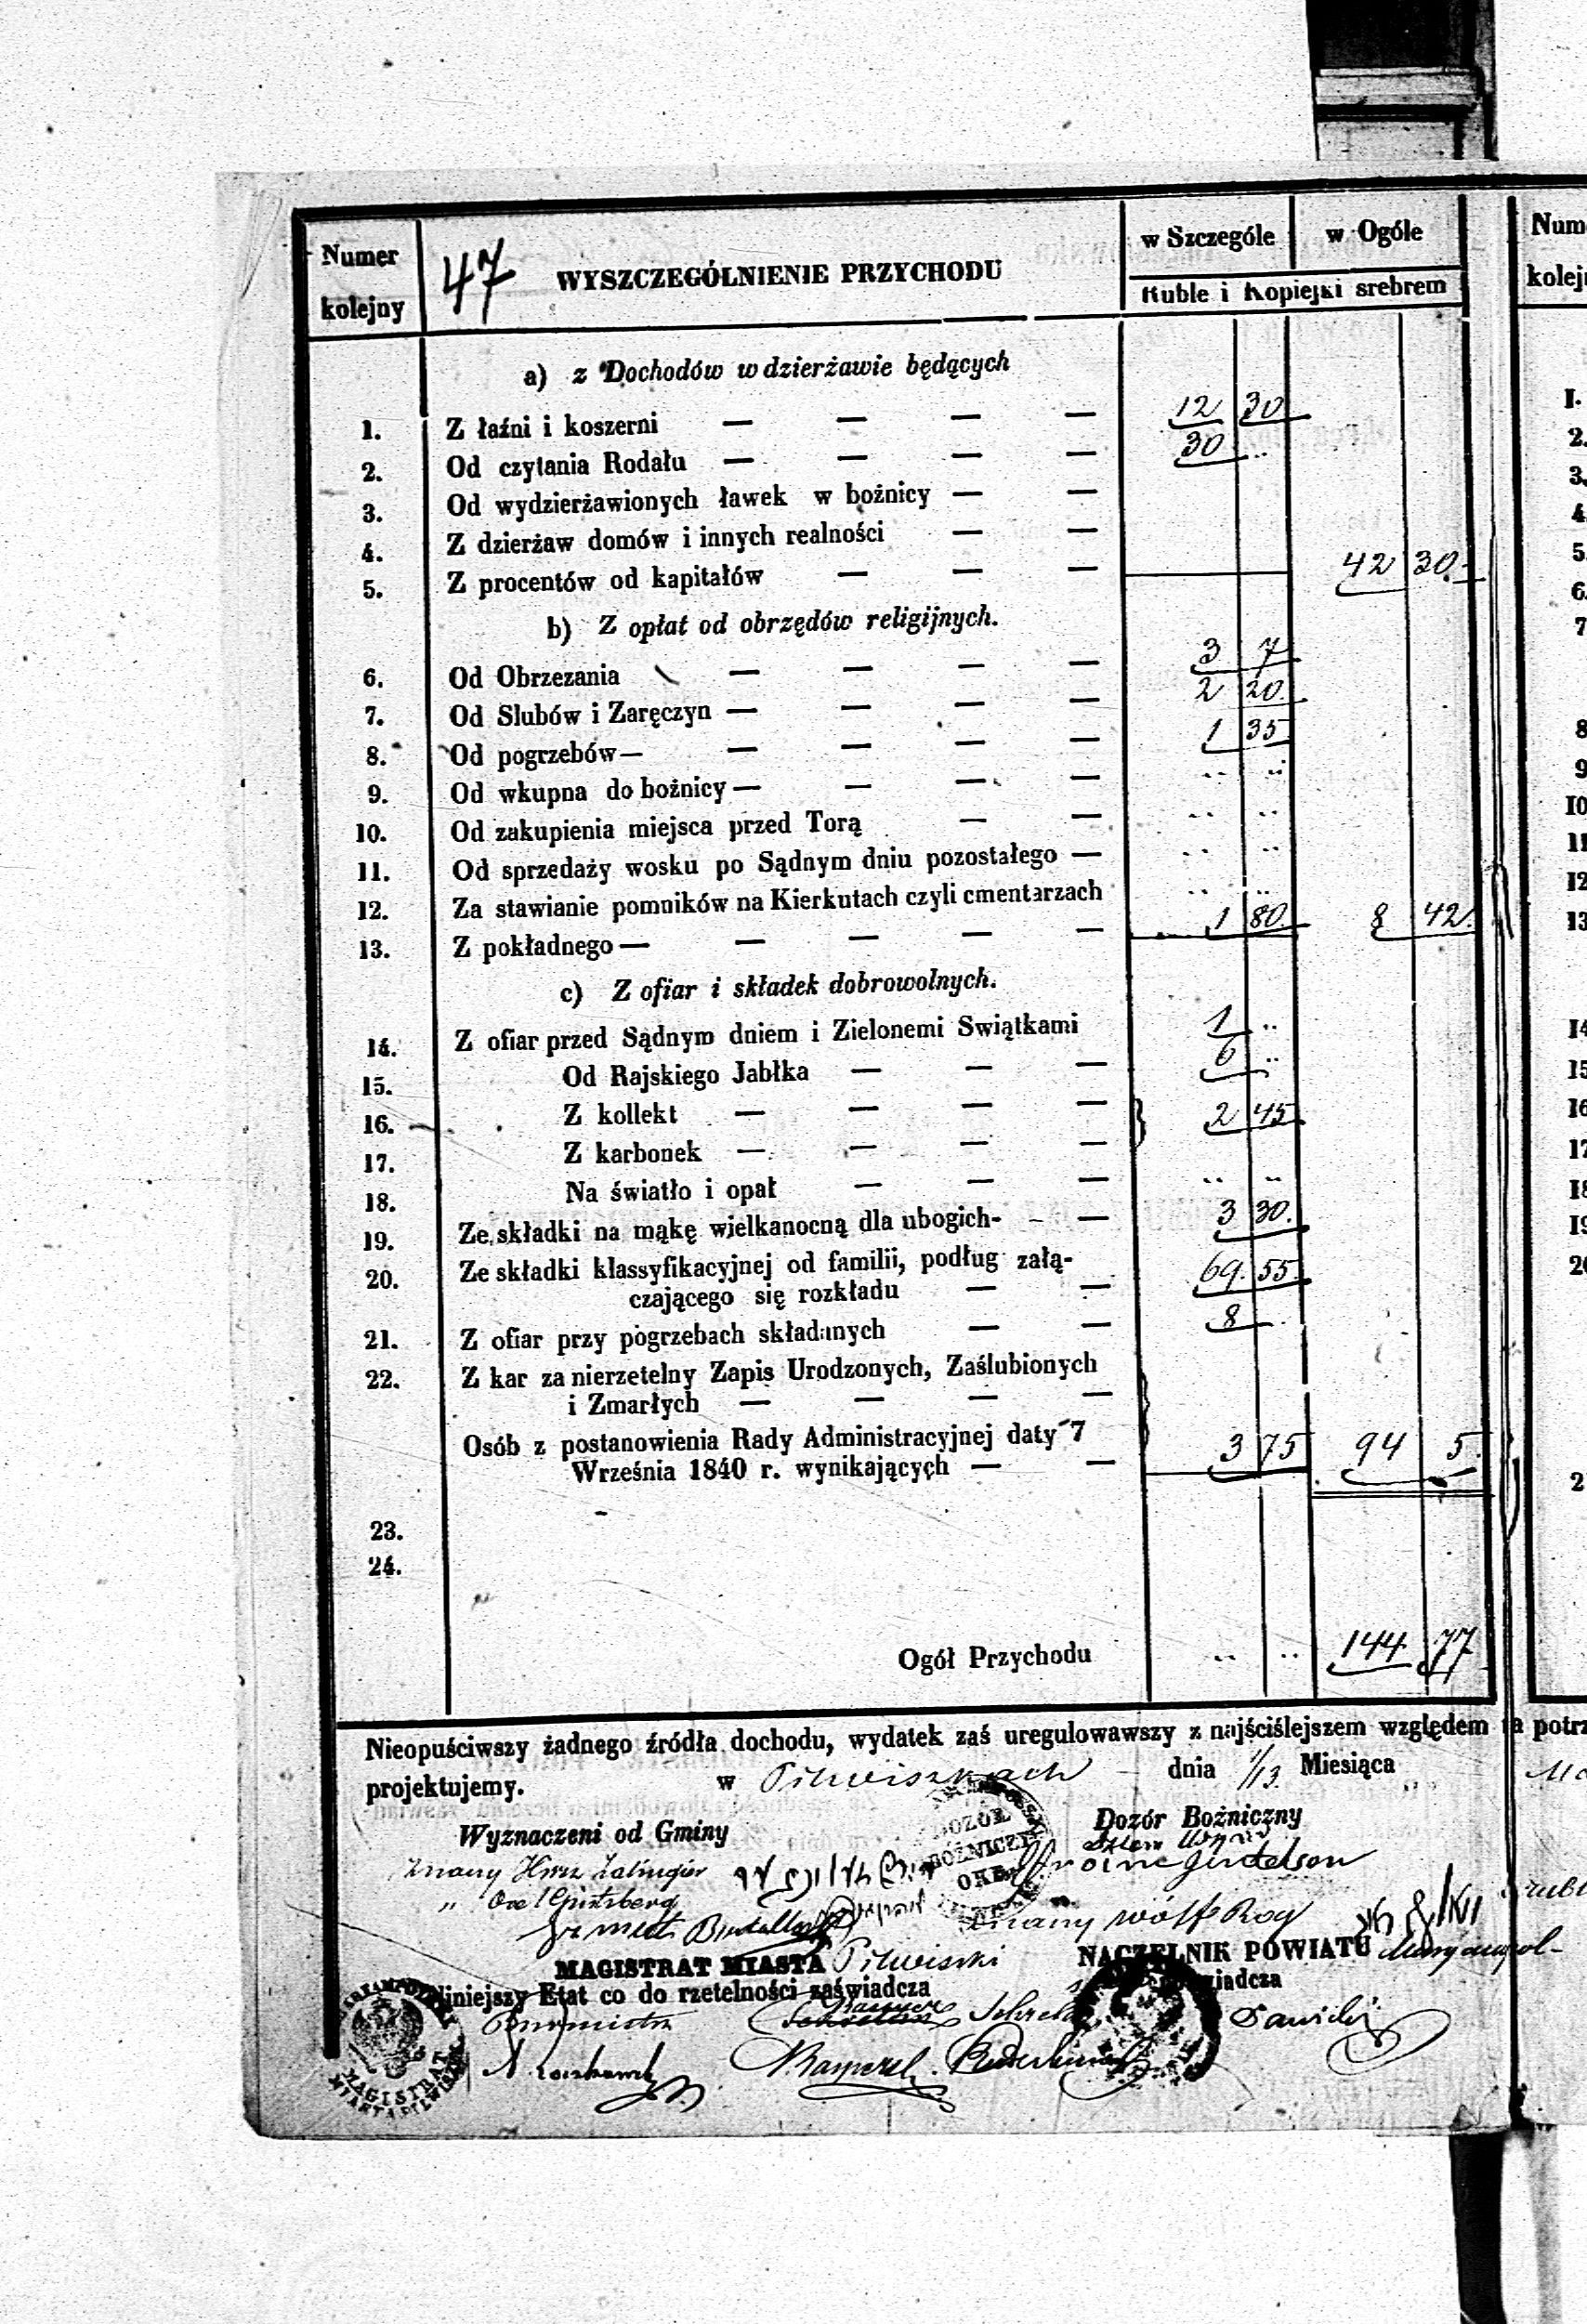 Numer kolejny
47
WYSZCZEGÓLNIENIE PRZYCHODU
w Szczególe
w Ogóle
Ruble i Kopiejki srebrem
a) z Dochodów w dzierżawie będących
1. Z łaźni i koszerni — — — — 12 30
2. Od czytania Rodału — — — — 30 ..
3. Od wydzierżawionych ławek w bożnicy — —
4. Z dzierżaw domów i innych realności — —
5. Z procentów od kapitałów — — — 42 30
b) Z opłat od obrzędów religijnych.
6. Od Obrzezania — — — — 3 7
7. Od Slubów i Zaręczyn — — — — 2 20
8. Od pogrzebów — — — — 1 35
9. Od wkupna do bożnicy — — — — .. ..
10. Od zakupienia miejsca przed Torą — — .. ..
11. Od sprzedaży wosku po Sądnym dniu pozostałego — .. ..
12. Za stawianie pomników na Kierkutach czyli cmentarzach .. ..
13. Z pokładnego — — — — — 1 80 8 42
c) Z ofiar i składek dobrowolnych.
14. Z ofiar przed Sądnym dniem i Zielonemi Swiątkami 1 ..
15. Od Rajskiego Jabłka — — — 6 ..
16. Z kollekt — — — — } 2 45
17. Z karbonek — — — —
18. Na światło i opał — — — .. ..
19. Ze składki na mąkę wielkanocną dla ubogich - – — 3 30
20. Ze składki klassyfikacyjnej od familii, podług załą-
czającego się rozkładu — — 69 55
21. Z ofiar przy pogrzebach składanych — — 8 .
22. Z kar za nierzetelny Zapis Urodzonych, Zaślubionych
i Zmarłych — — — —
Osób z postanowienia Rady Administracyjnej daty 7
Września 1840 r. wynikających — — 3 75 94 5
23.
24.
Ogół Przychodu .. .. 144 77
Nieopuściwszy żadnego źródła dochodu, wydatek zaś uregulowawszy z najściślejszem względem na potrz
projektujemy. w Pilwiszkach dnia 1/13 Miesiąca
Wyznaczeni od Gminy
Dozór Bożniczny
DOZÓR BOŻNICZY OKR
Wolf Roy
MAGISTRAT MIASTA Pilwiszki
NACZELNIK POWIATU
Niniejszy Etat co do rzetelności zaświadcza
Burmistrz
MAGISTRAT
MIASTA PILWISZK
Num
kolej
1.
2.
3.
4.
5.
6.
7
8
9
10
11
12
13
14
15
16
17
18
19
20
2